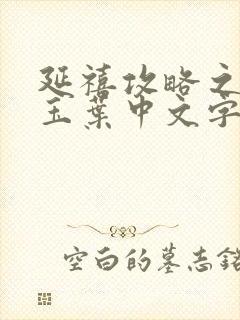 延禧攻略之
玉葉中文字
空白的墓志铭